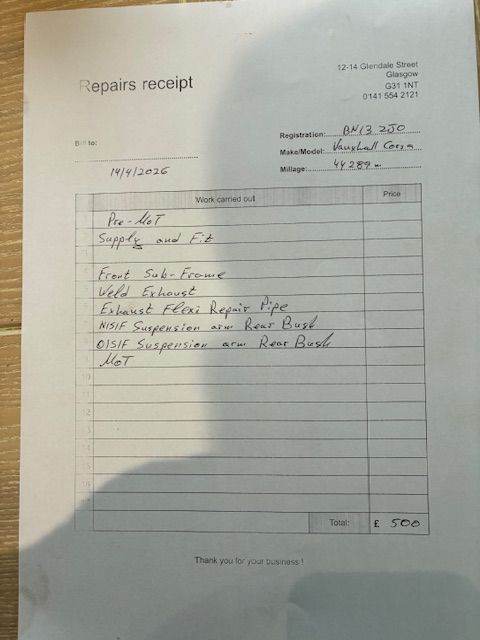 Repairs receipt
12-14 Glendale Street
Glasgow
G31 1NT
0141 554 2121
Bill to:
14/4/2026
Registration: BN13 2JO
Make/Model: Vauxhall Corsa
Millage: 44289 m
Work carried out
Price
Pre-MoT
Supply and Fit
Front Sub-Frame
Weld Exhaust
Exhaust Flexi Repair Pipe
N/S/F Suspension arm Rear Bush
O/S/F Suspension arm Rear Bush
MoT
10
11
12
13
14
15
16
Total: £ 500
Thank you for your business !